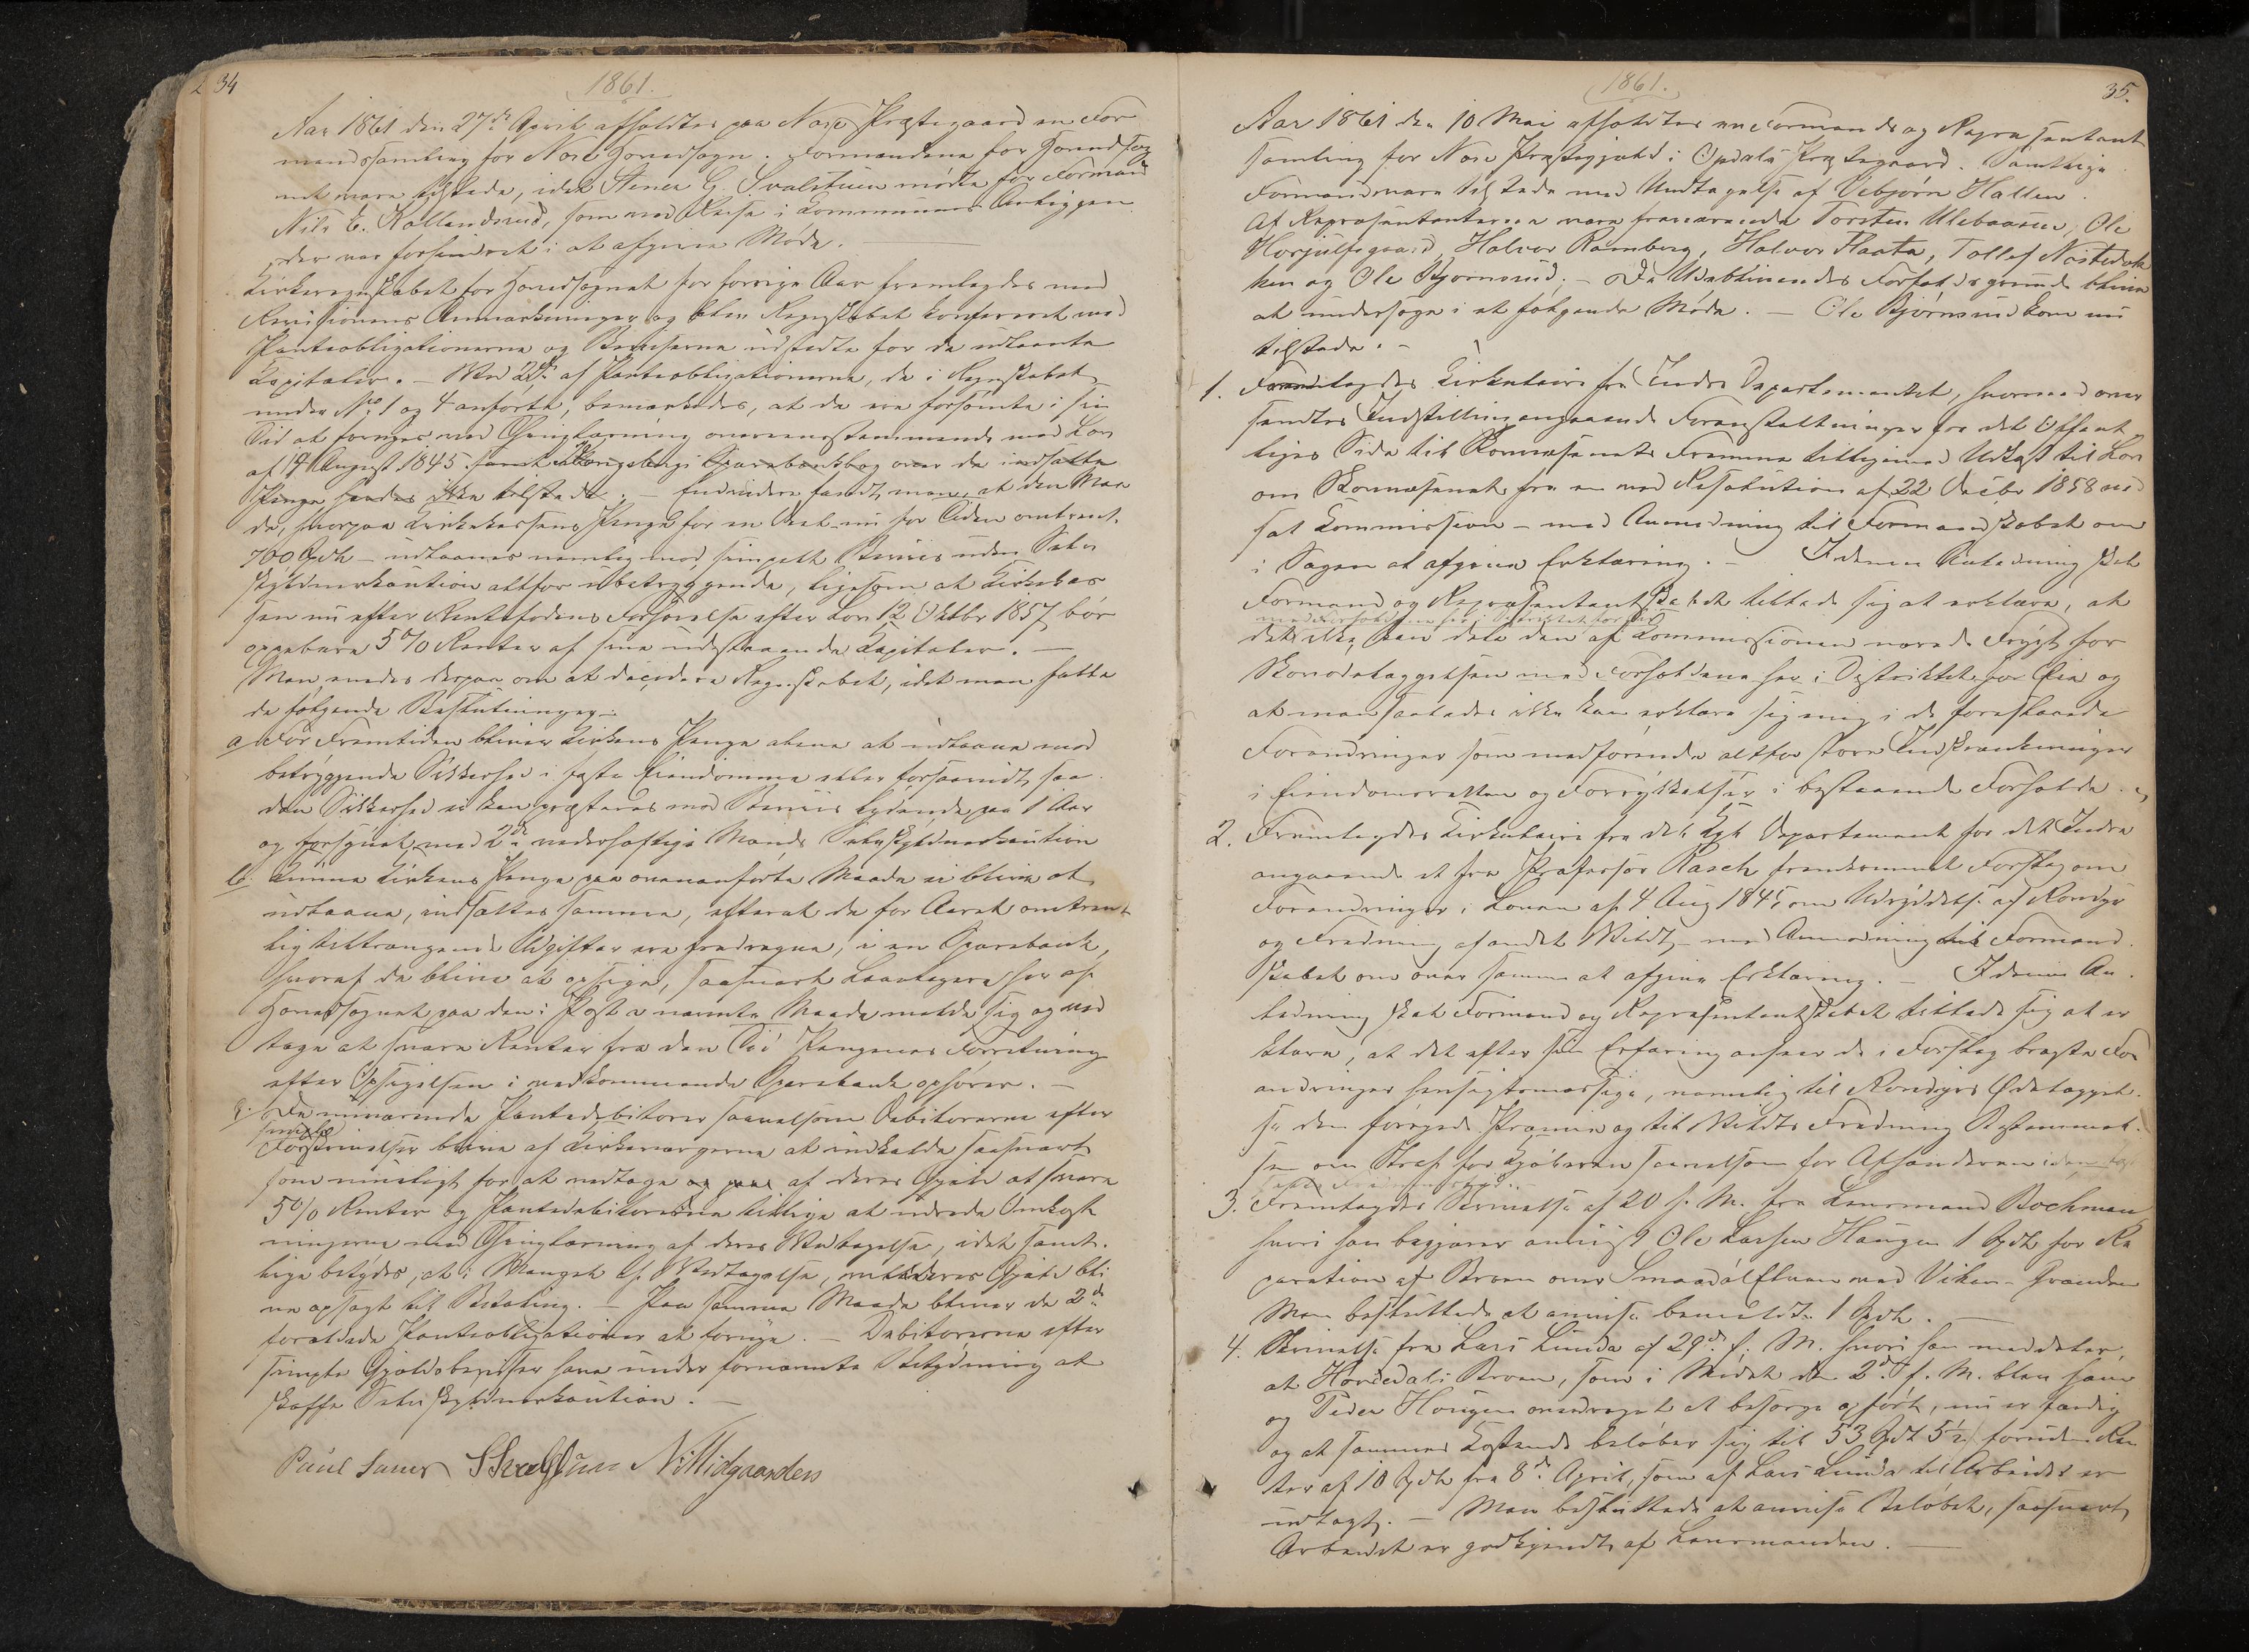 34
1861.
Aar 1861 den 27de April afholdtes paa Nore Præstegaard en For
mandssamling for Nore Hovedsogn. Formændene for Hovedsog
net vare tilstede, idet Stener G. Svalstuen mødte for Formand
Nils E. Kollandsrud, som ved Reise i Communens Anliggen
der var forhindret i at afgive Møde.
Kirkeregnskabet for Hovedsognet for forrige Aar fremlagdes med
Revisionens Anmærkninger og blev Regnskabet confereret med
Panteobligationerne og Beviserne udstedte for de udlaante
Kapitaler. – Ved 2de af Panteobligationerne, de i Regnskabet
under No 1 og 4 anførte, bemærkedes, at de ere forsømte i sin
Tid at fornyes ved Thinglæsning overensstemmende med Lov
af 14 August 1845 samt Kongsbergs Sparebanksbog over de indsatte
Penge havdes ikke tilstede. – Endvidere fandt man, at den Maa
de, hvorpaa Kirkekassens Penge for en Deel – nu for Tiden omtrent
700 Spd – udlaanes nemlig mod simpelt Beviis uden Selv
skyldnerkaution altfor ubetryggende, ligesom at Kirkekas
sen nu efter Rentefodens Forhøielse efter Lov 12 Oktbr 1857 bør
oppebære 5 % Renter af sine udestaaende Kapitaler. –
Man enedes derpaa om at decidere Regnskabet, idet man fatte
de følgende Beslutninger:
a For Fremtiden bliver Kirkens Penge alene at udlaane mod
betryggende Sikkerhed i faste Eiendomme eller forsaavidt saa
dan Sikkerhed ei kan præsteres mod Beviis lydende paa 1 Aar
og forsynet med 2de vederhæftige Mænds Selvskyldnerkaution
b. Kunne Kirkens Penge paa ovenanførte Maade ei blive at
udlaane, indsættes samme, efterat de for Aaret omtrent
lig tiltrængende Udgifter ere fradragne, i en Sparebank,
hvoraf de blive at opsige, saasnart Laantagere her af
Hovedsognet paa den i Post a nævnte Maade melde sig og ved
tage at svare Renter fra den Tid Pengenes Forrentning
efter Opsigelsen i vedkommende Sparebank ophører. –
c. De nuværende Pantedebitorer saavelsom Debitorerne efter
simple
Forskrivelser blive af Kirkeværgerne at indkalde saasnart
som muligt for at vedtage af deres Gjæld at svare
5 % Renter og Pantedebitorerne tillige at udrede Omkost
ningerne med Thinglæsning af deres Vedtagelse, idet samt
lige betydes, at i Mangel af Vedtagelse, vil deres Gjæld bli
ve opsagt til Betaling. – Paa samme Maade bliver de 2de
forældede Panteobligationer at fornye. – Debitorerne efter
simple Gjældsbeviser have under fornævnte Betydning at
skaffe Selvskyldnerkaution. –
Paul Juuer S Svalstuen N Midgaarden
1861.
35.
Aar 1861 den 10 Mai afholdtes en Formands og Repræsentant
samling for Nore Præstegjæld i Opdals Præstegaard. Samtlige
Formænd vare tilstede med Undtagelse af Vebjørn Hallen.
Af Repræsentanterne vare fraværende Torsten Ulebaasen, Ole
Horjulsgaard, Halvor Ramberg, Halvor Flaata, Tollef Nørstedok
ken og Ole Bjørnsrud. – De Udeblivendes Forfaldsgrunde blive
at undersøge i et følgende Møde. – Ole Bjørnsrud kom nu
tilstede. –
1. Fremlagdes Cirkulaire fra Indre Departementet, hvormed over
sendtes Indstilling angaaende Foranstaltninger fra det Offent
liges Side til Skovvæsenets Fremme tilligemed Udkast til Lov
om Skovvæsenet fra en ved Resolution af 22 Decbr 1858 ned
sat Kommission – med Anmodning til Formandskabet om
i Sagen at afgive Erklæring. – I denne Anledning skal
Formand og Repræsentantskabet tillade sig at erklære, at
det ikke kan dele den af Kommissionen nærede Frygt for
Skovødelæggelsen med Forholdene her i Distriktet for Øie og
at man saaledes ikke kan erklære sig enig i de foreslaaede
Forandringer som medførende altfor store Indskrænkninger
i Eiendomsretten og Forrykkelser i bestaaende Forholde.
2. Fremlagdes Cirkulaire fra det Kgl Departement for det Indre
angaaende et fra Professor Rasch fremkommet Forslag om
Forandringer i Loven af 4 Aug 1845 om Udryddelse af Rovdyr
og Fredning af andet Vildt – med Anmodning til Formand
skabet om over samme at afgive Erklæring. – I denne An
ledning skal Formand og Repræsentantskabet tillade sig at er
klære, at det efter sin Erfaring anseer de i Forslag bragte For
andringer hensigtsmæssige, nemlig til Rovdyrs Ødelæggel
se den forøgede Præmie og til Vildts Fredning Bestemmel
sen om Straf for Kjøberen saavelsom for Afhænderen
3. Fremlagdes Skrivelse af 20 f. M. fra Lensmand Bochman
hvori han begjærer anviist Ole Larsen Haugen 1 Spd for Re
paration af Broen over Smaadøl Elven ved Viken-Grænden
Man besluttede at anvise bemeldte 1 Spd. –
4. Skrivelse fra Lars Lunde af 29de f. M. hvori han meddeler,
at Hovdedals Broen, som i Mødet den 2de f. M. blev ham
og Peder Haugen overdraget at besørge opført, nu er færdig
og at sammes Kostende beløber sig til 53 Spd 5½ foruden Ren
ter af 10 Spd fra 8de April, som af Lars Lunde til Arbeidet er
udlagt. – Man besluttede at anvise Beløbet, saasnart
Arbeidet er godkjendt af Lensmanden. –